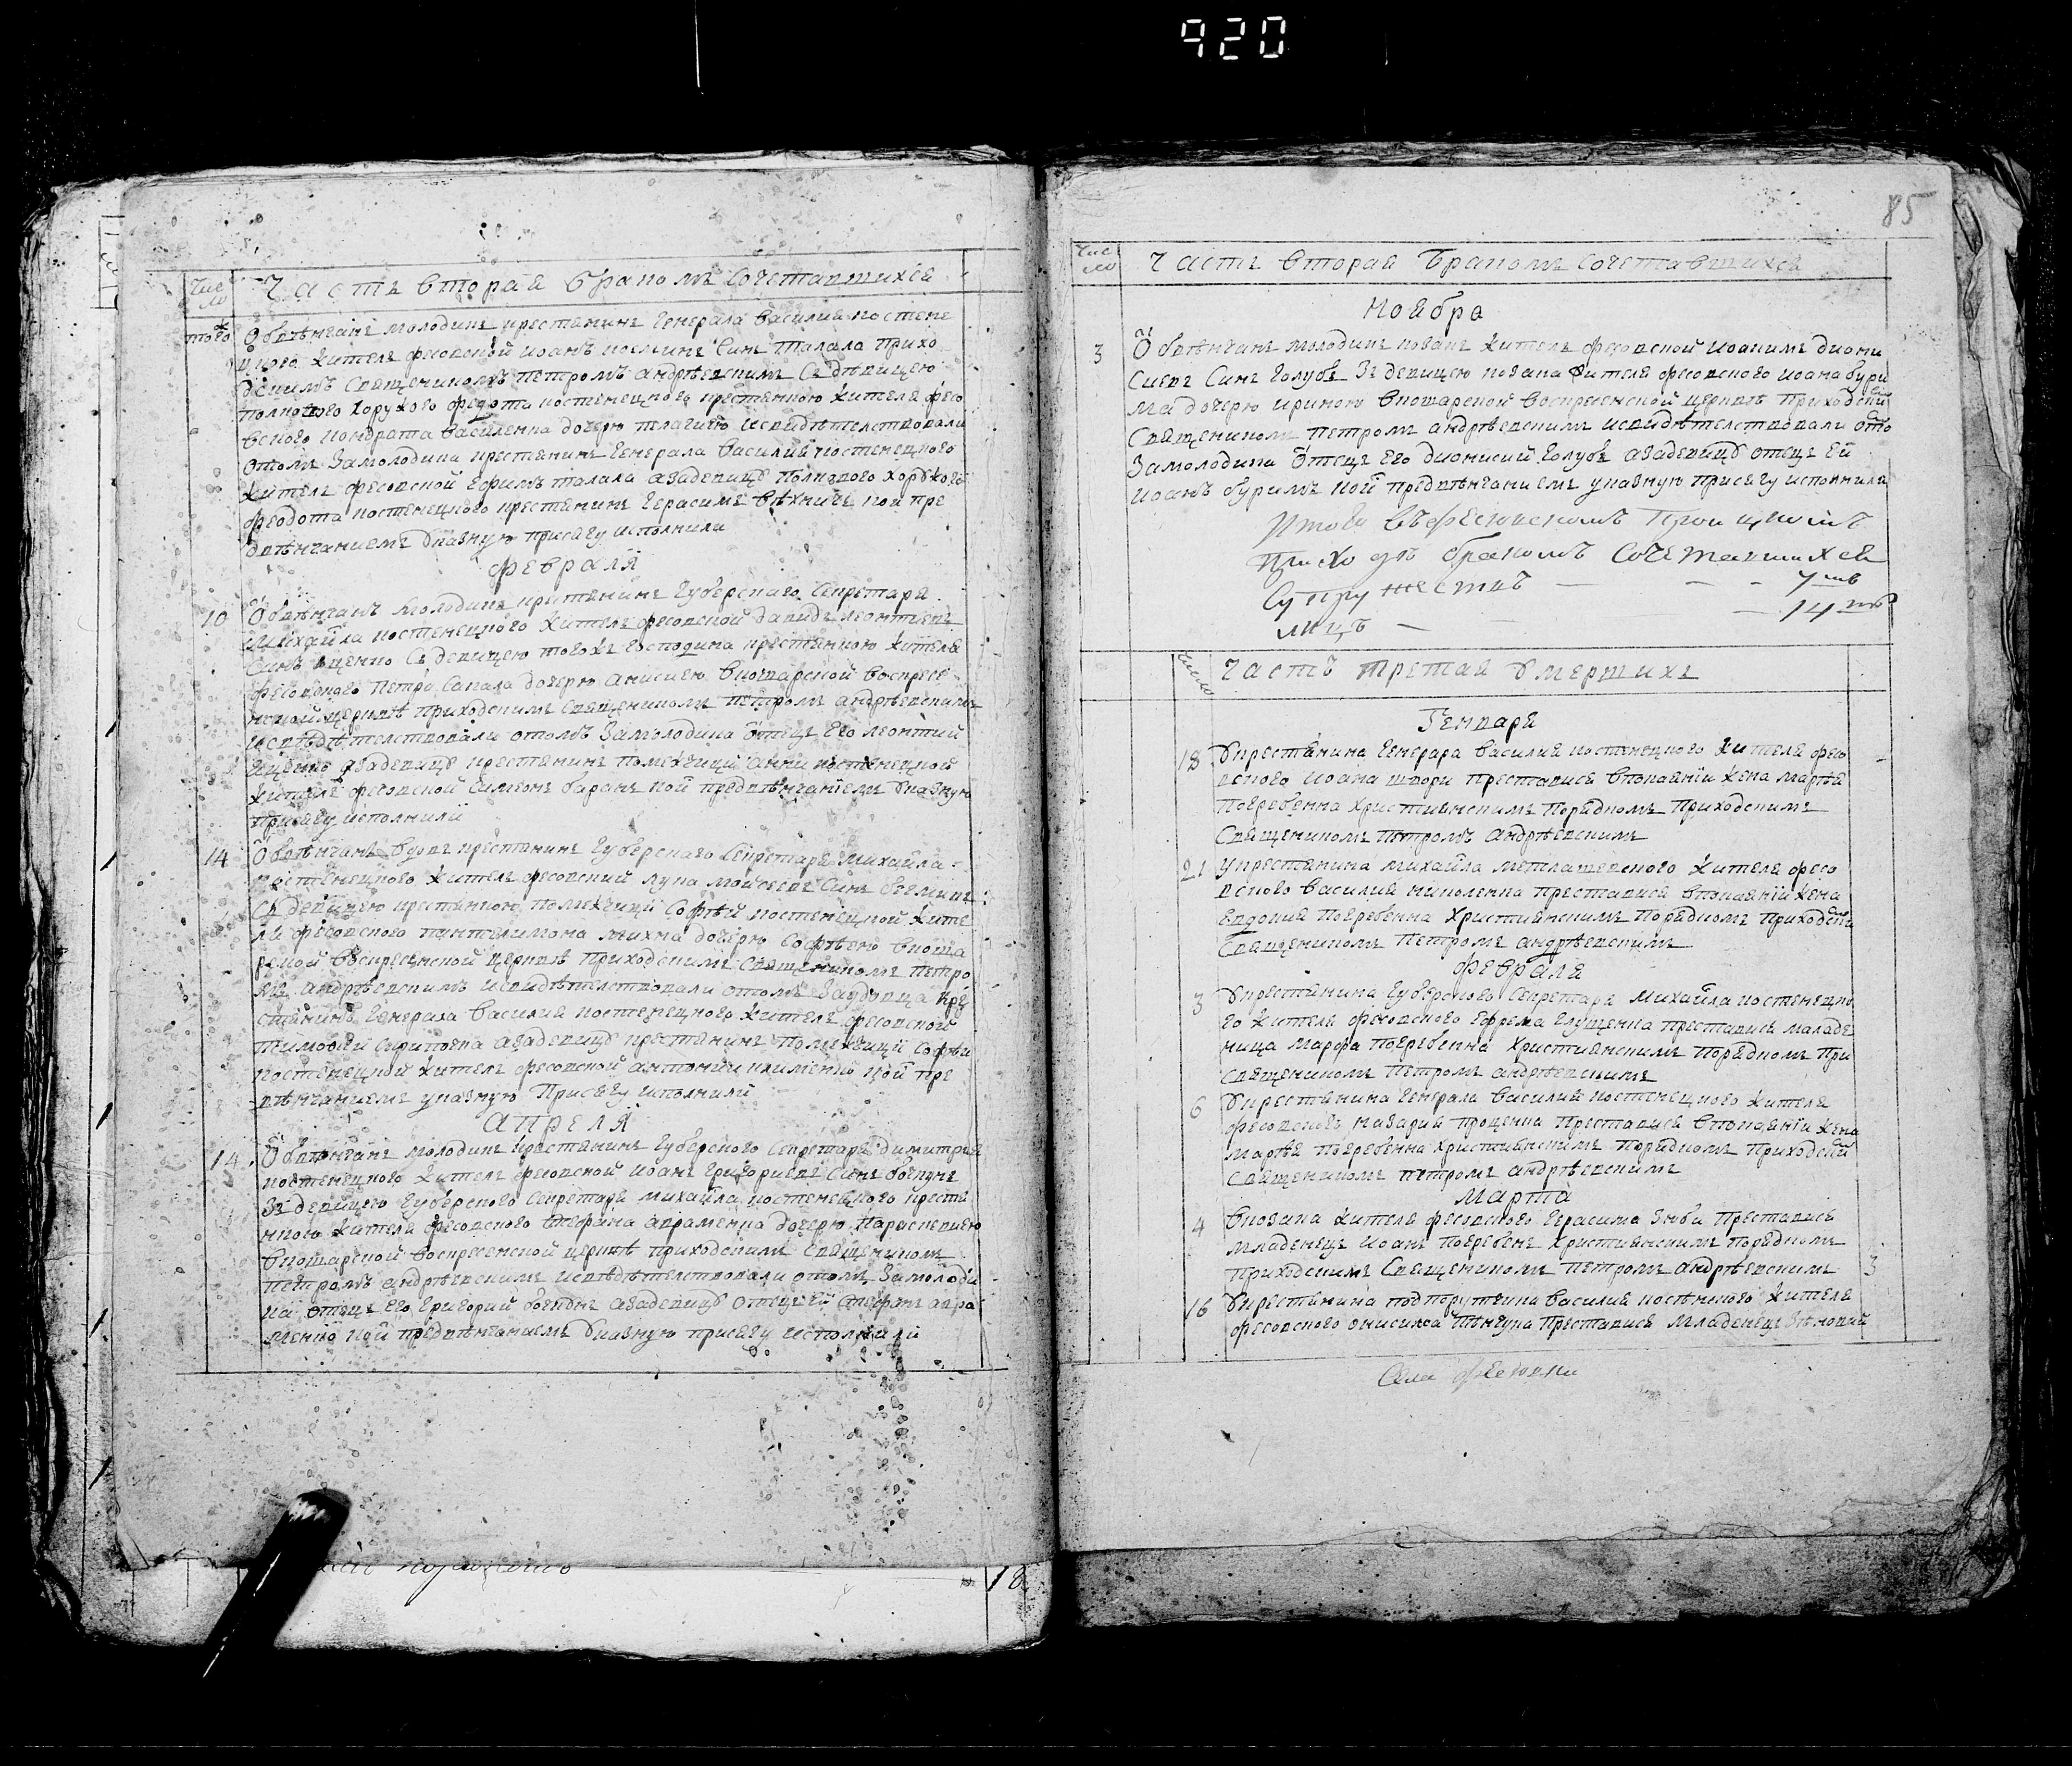 920
Число
Часть вторая бракомъ сочетавшихся
того ж
Обвѣнчанъ молодикъ крестянинъ генерала василия костене
цкого жителъ фесовской иоанъ косминъ синъ талала прихо
дскимъ священикомъ петромъ андрѣевскимъ съ дѣвицею
полкового хорунжого федота костенецкого крестянкою жителя фесо
вского кондрата василенка дочерю пелагиею исвидѣтелствовали
отомъ замолодика крестянинъ генерала василия костенецкого
жителъ фесовской ефимъ талала азадевицу полкового хорунжого
феодота костенецкого крестянинъ герасимъ кои пре
двѣнчаниемъ указную присягу исполнили
февраля
10
Обвѣнчанъ молодикъ крстянинъ губерского секретаря
михайла костенецкого жителъ фесовской давидъ леонтиевъ
синъ ищенко съ девицею тогожъ господина крестянкою жителя
фесовского петра сапала дочерю анисиею вкошарской воскресе
нской церквѣ приходскимъ священикомъ петромъ андрѣевскимъ
исвѣдѣтелствовали отомъ замолодика отецъ его леонтий
ищенко азадевицу крестянинъ помежчици анни костенецкой
жителъ фесовской симеонъ баранъ кои предвѣнчаниемъ указную
присягу исполнили
14
Обвѣнчанъ вдовъ крестянинъ губерского секретаря михайла
костенецкого жителъ фесовский лука мойсеевъ синъ
съ девицею крестянкою помежчици софѣи костенецкой жите
ля фесовского пантелимона михна дочерю софѣею вкоша
рской воскресенской церквѣ приходскимъ священикомъ петро
мъ андрѣевскимъ исвидѣтелствовали отомъ завдовца кре
стянинъ генерала василия костенецкого жителъ фесовской
тимофий скрипочка азадевицу крестянинъ помежчици софѣи
костенецкой жителъ фесовской антоний клименко кои пре
двѣнчаниемъ указную присягу исполнили
апреля
14
Обвѣнчанъ молодикъ крестянинъ губерского секретаря димитрия
костенецкого жителъ фесовской иоанъ григориевъ синъ
зъ девицею губерского секретаря михайла костенецкого крестя
нкою жителя фесовского стефана авраменка дочерю параскевиею
вкошарской воскресенской церквѣ приходскимъ священикомъ
петромъ андрѣевскимъ исвѣдѣтелствовали отомъ замолоди
ка отецъ его григорий азадевицу отецъ ей стефанъ авра
менко кои предвѣнчаниемъ указную присягу исполнили
18
85
Число
Часть вторая бракомъ сочетавшихся
Ноября
3
Обвѣнчанъ молодикъ козакъ жителъ фесовской иоакимъ диони
сиевъ синъ голубъ зъ девицею козака жителя фесовского иоана бури
ма дочерю ириною вкошарской воскресенской церквѣ приходским
священикомъ петромъ андрѣевскимъ исвидѣтелствовали ото
замолодика отецъ его дионисий голубъ азадевицу отецъ ей
иоанъ буримъ кои предвѣнчаниемъ указную присягу исполнили
Итого въ фесювскомъ
приходѣ бракомъ сочетавшихся
супружествъ — — — 7
лицъ — — — 14
Число
Часть третая умершихъ
Генваря
18
Укрестянина генерара василия костенецкого жителя фесо
вского иоана шкори преставися впокаянии жена марѣя
погребенна християнскимъ порядкомъ приходскимъ
священикомъ петромъ андрѣевскимъ
21
Укрестянина михайла метлашевского жителя фесо
вского василия николенка преставися впокаянии жена
евдокия погребенна християнскимъ порядкомъ приходским
священикомъ петромъ андрѣевскимъ
февраля
3
Укрестянина губерского секретаря михайла костенецко
го жителя фесовского ефрема глущенка преставись младе
ница марфа погребенна християнскимъ порядкомъ при
священикомъ петромъ андрѣевскимъ
6
Укрестянина генерала василия костенецкого жителя
фесовского назария проценка преставися впокаянии жена
марѣя погребенна християнскимъ порядкомъ приходский
священикомъ петромъ андрѣевскимъ
Марта
4
Вкозака жителя фесовского герасима преставися
младенецъ иоанъ погребенъ християнскимъ порядкомъ
приходскимъ священикомъ петромъ андрѣевскимъ
3
16
Укрестянина подпорутчика василия жителя
фесовского онисима преставися младенецъ зѣновий
Села фесювки